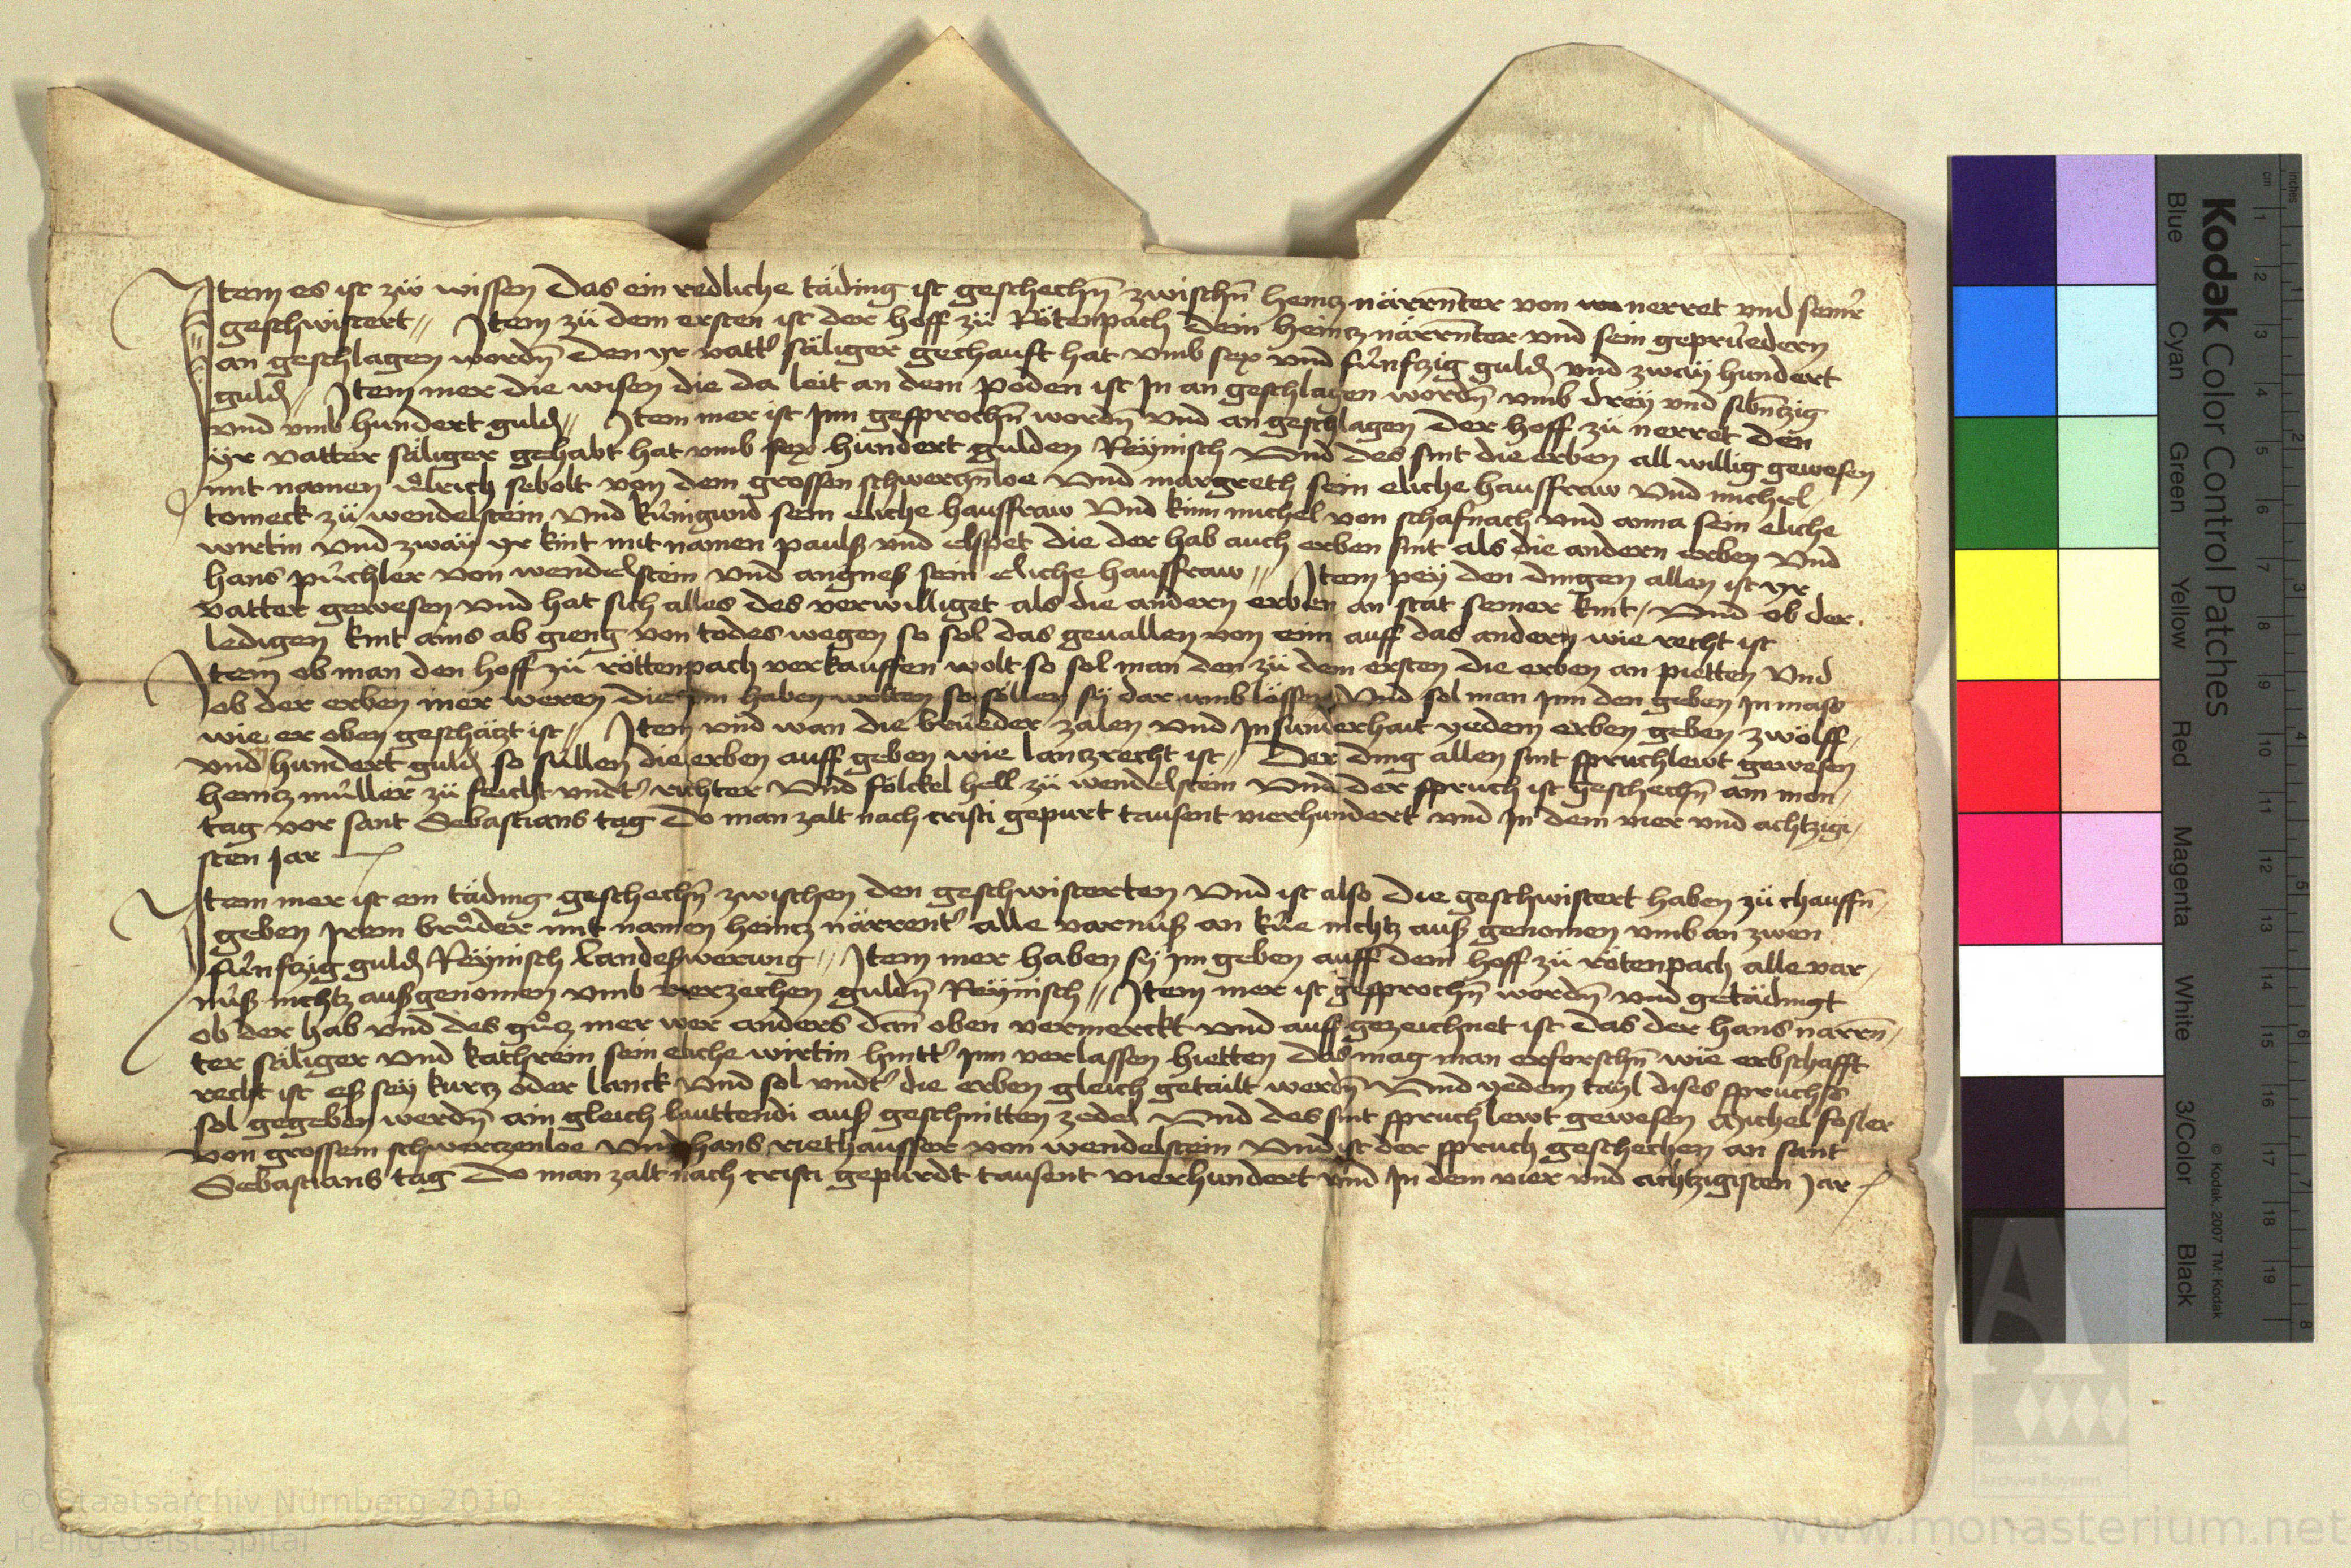 Item es ist zw wissen Das ein redliche täding ist geschechn̄ zwischn̄ heintz närrn̄ter von nerret vnd seinr̕
geschwistert// Item zü dem ersten ist der hoff zü Rötenpach Dem heintz närrn̄ter vnd sein geprůedern
an geschlagen wordn̄ Den yr vatt̕ säliger gechauft hat vmb sex vnd fůnftzig guld vnd zwaÿ hundert
guld// Item mer die wisen die da leit an dem poden ist Jn an geschlagen wordn̄ vmb dreÿ vnd sibn̄tzig
vnd vmb hundert guld// Item mer ist Jnn gesprochn̄ wordn̄ vnd an geschlagen Der hoff zü nerret den
ÿr vatter säliger gehabt hat vmb sex hundert gulden Reÿnisch Vnd des sint die erben all willig gewesen
mit namen vͦlrich sebolt von dem grossen schwerczn̄loe Vnd margreth sein eliche hausfraw Vnd michel
tomeck zü wendelstein Vnd kůnigund sein eliche hausfraw Vnd michel von schafnach vnd anna sein eliche
wirtin Vnd zwaÿ yr kint mit namen pauls vnd elspet die der hab auch erben sint als die andern erben Vnd
hans půchler von wendelstein vnd angneß sein eliche hausfraw // Item peÿ den dingen allen ist yr
vatter gewesen vnd hat sich alles des verwilliget als die andern erben an stat seiner kint/ Vnd ob der
ledigen kint ains ab gieng von todes wegen so sol das geuallen von eim auff das andern wie recht ist
Item ob man den hoff zü röttenpach verkauffen wolt so sol man den zü dem ersten die erben an pietten Vnd
ob der erben mer weren die Jm haben wolten so söllen sÿ dar vmb lössen Vnd sol man Jnn den geben Jn mass
wie er oben geschäzt ist// Item vnd wan die brůeder zalen vnd Jn sunderhait yedem erben geben zwölff
vnd hundert guld so süllen die erben auff geben wie lantzrecht ist// Der ding allen sint spruchlewt gewesen
heintz můller zü feicht vndt̕ richter Vnd fölckel hell zü wendelstein Vnd der spruch ist geschechn̄ am mon/
tag vor sant Sebastians tag Do man zalt nach cristi gepurt tausent vierhundert vnd Jn dem vier vnd achtzigi/
sten Jar
Item mer ist ein täding geschechn̄ zwischen den geschwisterten Vnd ist also Die geschwistert haben zü chauffn̄/
geben Jrem brůder mit namen heintz närrent̕ alle varnůß an kůe nichtz auß genomen vmb an zwen
fůnftzig guld Reÿnisch landeßwerung// Item mer haben sÿ Jm geben auff dem hoff zü rötenpach alle var/
nůß nichtz außgenomen vmb vierzechen guldn̄ Reÿnisch// Item mer ist gesprochn̄ wordn̄ vnd getädingt
ob der hab vnd des gůtz mer wer anders dan̄ oben vermerckt vnd auff gezeichnet ist Das der hans narrn̄/
ter säliger vnd kathrein sein eliche wirtin hintt̕ Jnn verlassen hietten Das mag man erforschn̄ wie erbschafft
recht ist eß seÿ kurtz oder lanck Vnd sol vndt̕ die erben gleich getailt werdn̄ Vnd yedem tayl dises spruchs
sol gegeben werdn̄ ain gleich lauttendi auß geschnitten zedel Vnd des sint spruch lewt gewesen Michel foster
von grossem schwertzenloe Vnd hans riethausser von wendelstein Vnd ist der spruch geschechen an sant
Sebastians tag Do man zalt nach cristi gepurdt tausent vierhundert vnd Jn dem vier vnd achtzigisten Jar
Kodak Color Control Patches
Blue Cyan Green Yellow Red Magenta White 3/Color Black
© Kodak, 2007 TM: Kodak
© Staatsarchiv Nürnberg 2010
Heilig-Geist-Spital
www.monasterium.net